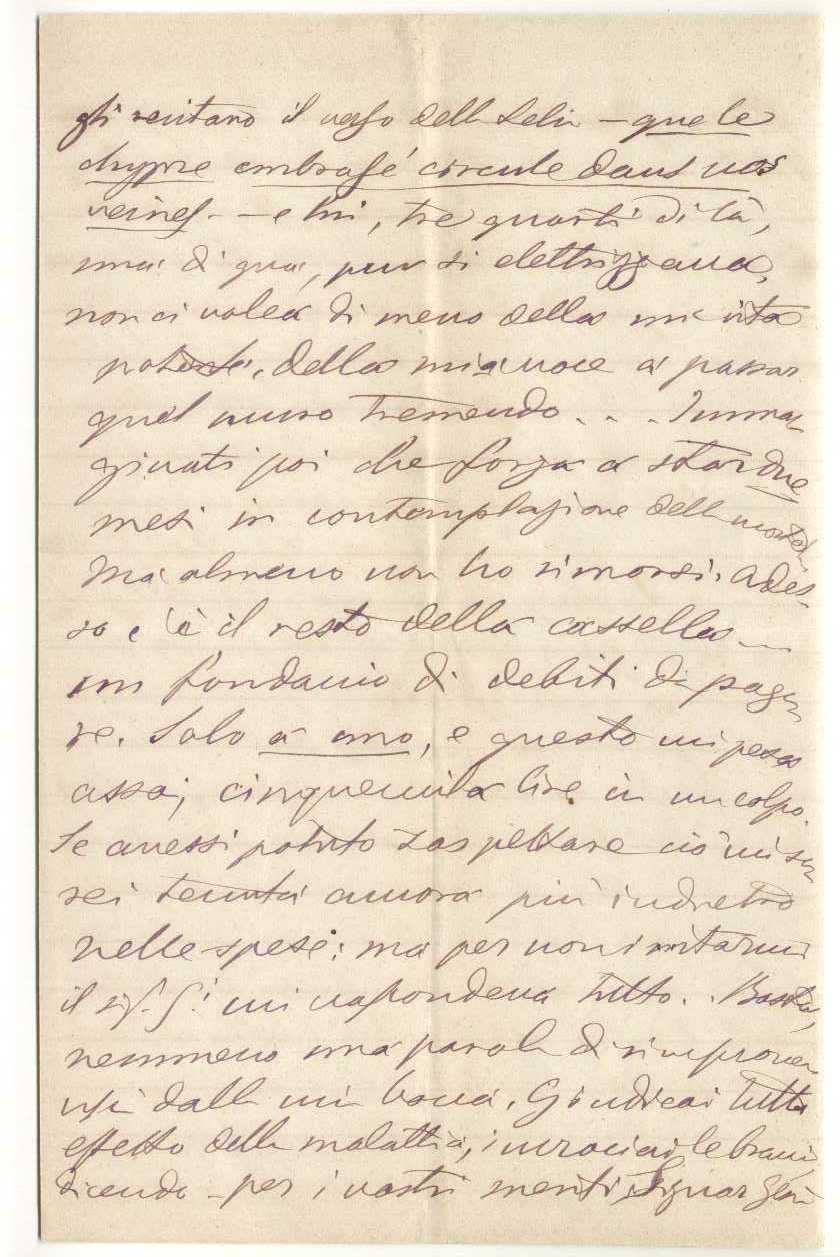 gli recitavo il verso della Lelia – que le
chypre embrasé circule dans vos
veines – – e lui, tre quarti di là,
uno di qua, pur si elettrizzava,
non ci volea di meno della mia vita
potente, della mia voce a passar
quel muro tremendo . . . Imma-
ginati poi che forza a star due
mesi in contemplazione della morte
Ma almeno non ho rimorsi. Ades-
so c'è il resto della cassella –
un fondaccio di debiti da paga-
re. Solo a uno, e questo mi pesa
assai, cinquemila lire in un colpo.
Se avessi potuto sospettare ciò mi sa-
rei tenuta ancora più indietro
nelle spese: ma per non irritarmi
il sig. G! mi nascondeva tutto. . Basta,
nemmeno una parola di rimprovero
uscì dalla mia bocca. Giudicai tutto
effetto della malattia, incrociai le braccia,
dicendo – per i vostri meriti, Signor